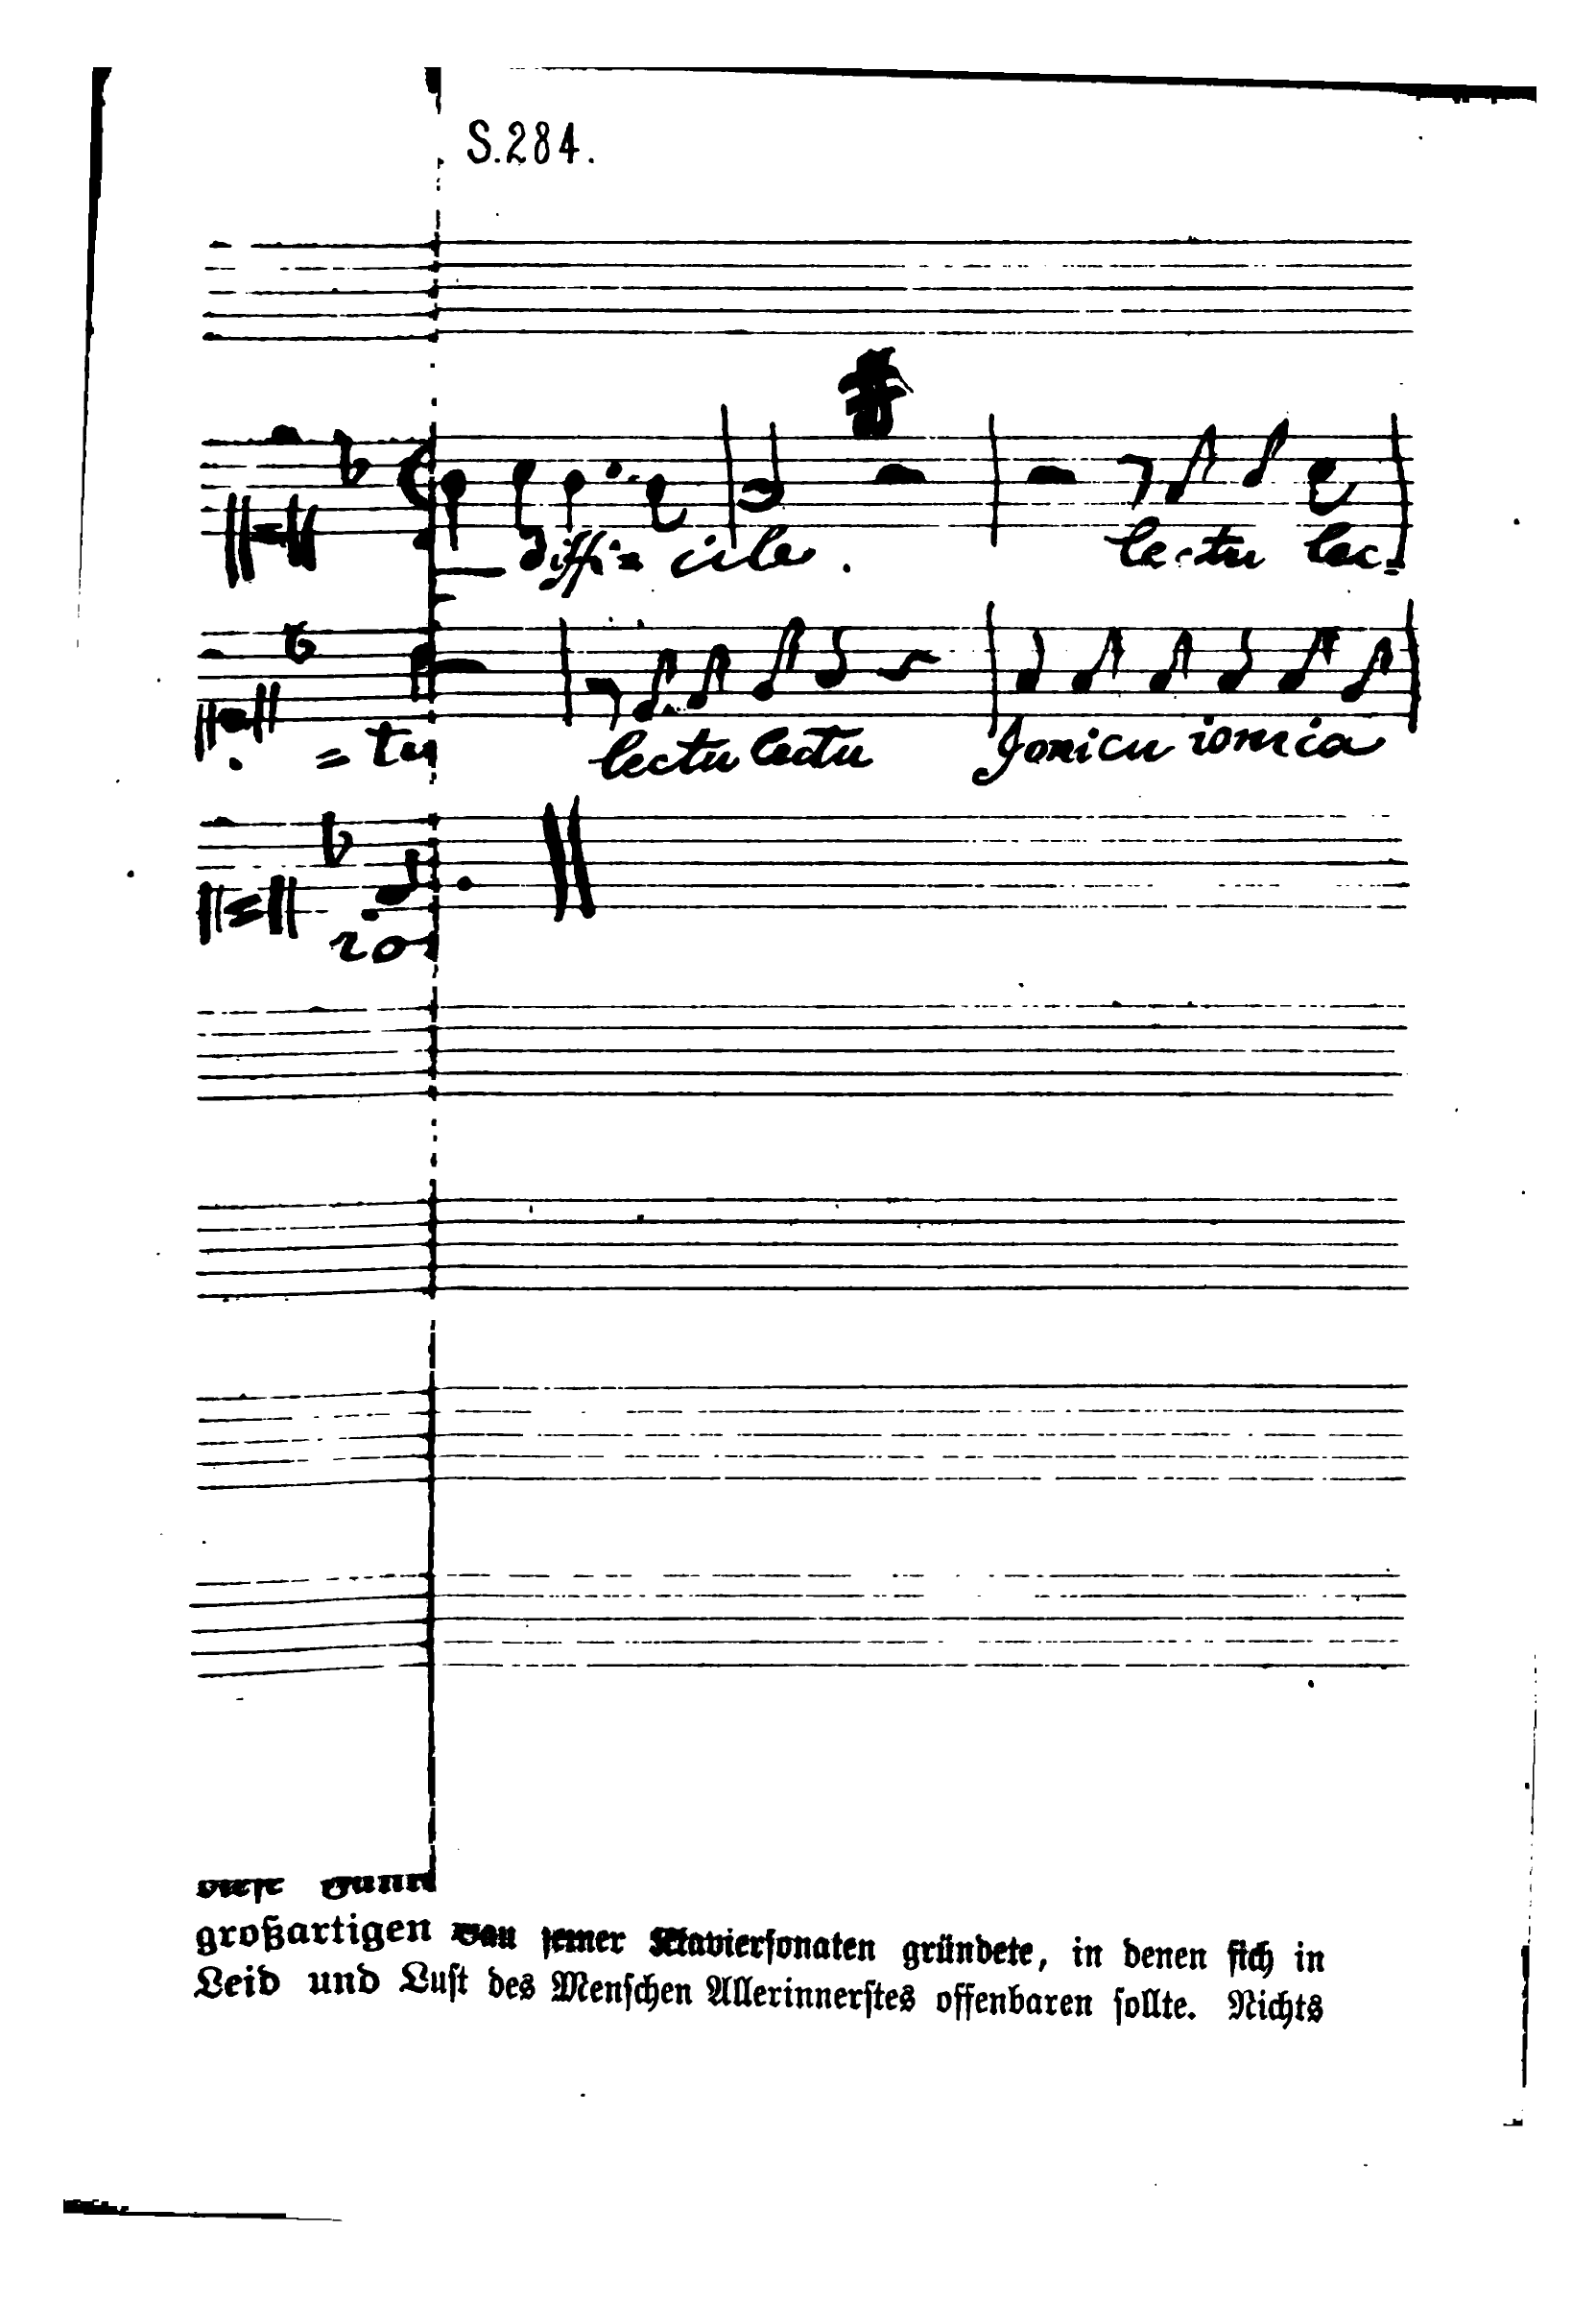 S. 284.
diffi= cile. lectu lec=
=tu lectu lectu Jonicu ionica
großartigen seiner Klaviersonaten gründete, in denen sich in
Leid und Lust des Menschen Allerinnerstes offenbaren sollte. Nichts